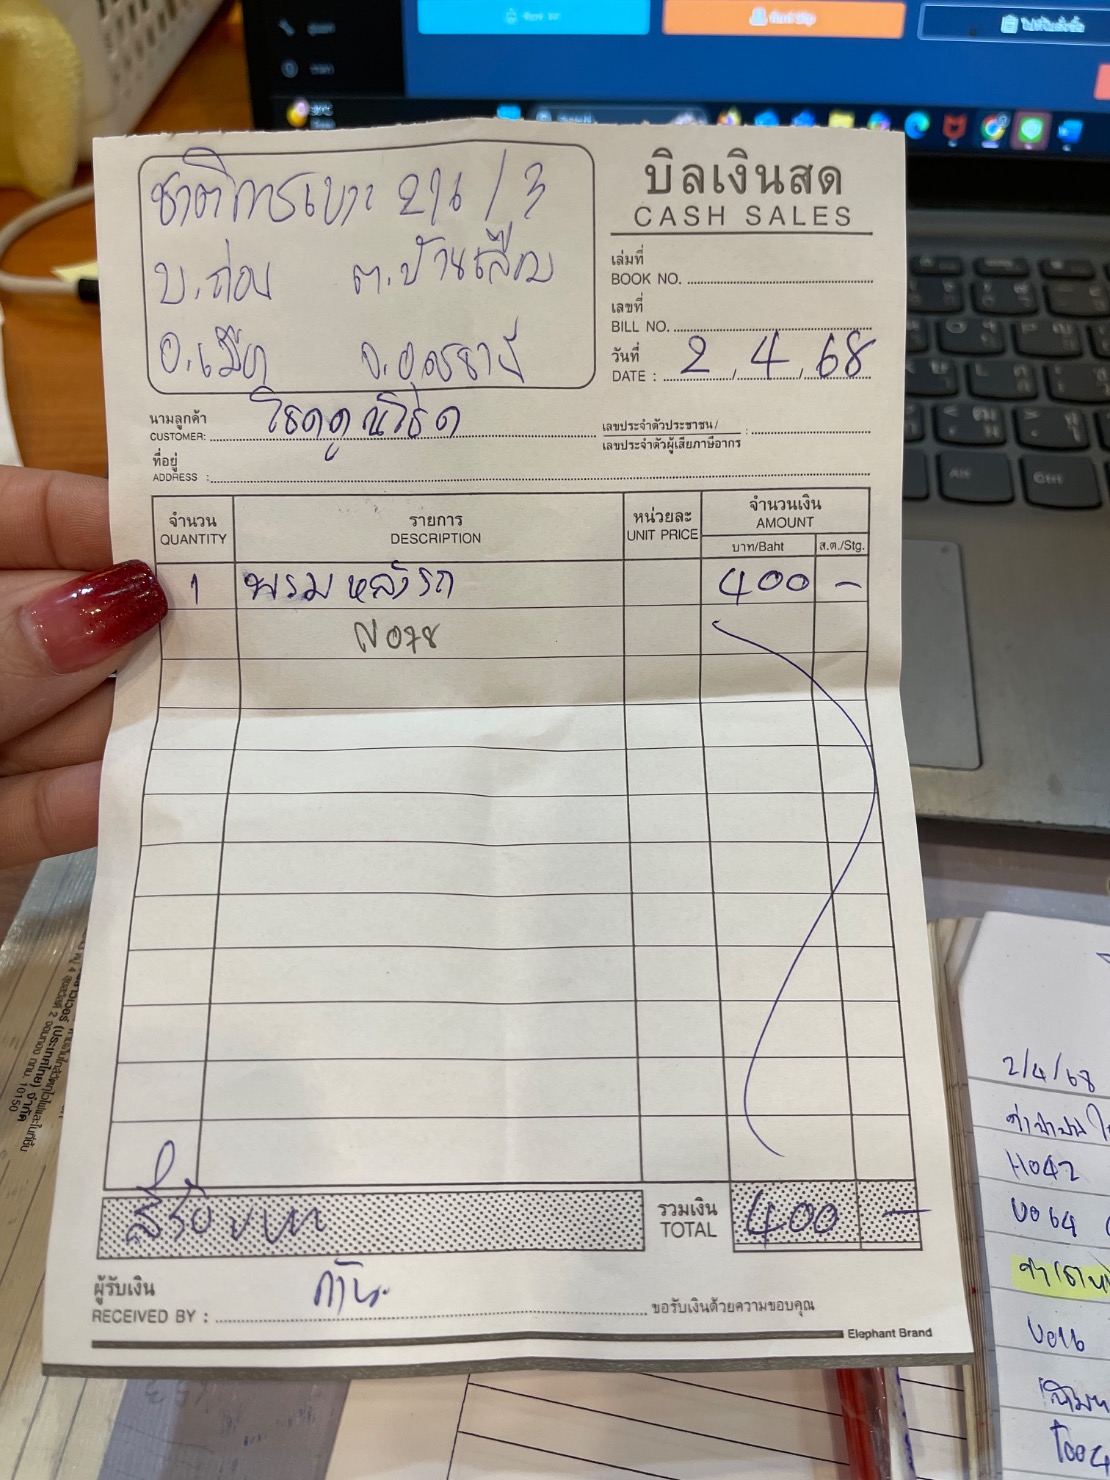 ชาติการเบาะ 216/3
บ.ถ่อน ต.บ้านเลื่อม
อ.เมือง จ.อุดรธานี
บิลเงินสด
CASH SALES
เล่มที่
BOOK NO.
เลขที่
BILL NO.
วันที่
DATE : 2 / 4 / 68
นามลูกค้า
CUSTOMER:
เลขประจำตัวประชาชน/
เลขประจำตัวผู้เสียภาษีอากร :
ที่อยู่
ADDRESS :
จำนวน รายการ หน่วยละ จำนวนเงิน
QUANTITY DESCRIPTION UNIT PRICE AMOUNT
บาท/Baht ส.ต./Stg.
1 พรมหลังรถ 400 -
N078
สี่ร้อยบาท รวมเงิน 400 -
TOTAL
ผู้รับเงิน
RECEIVED BY :
ขอรับเงินด้วยความขอบคุณ
Elephant Brand
2/4/68
H042
U064